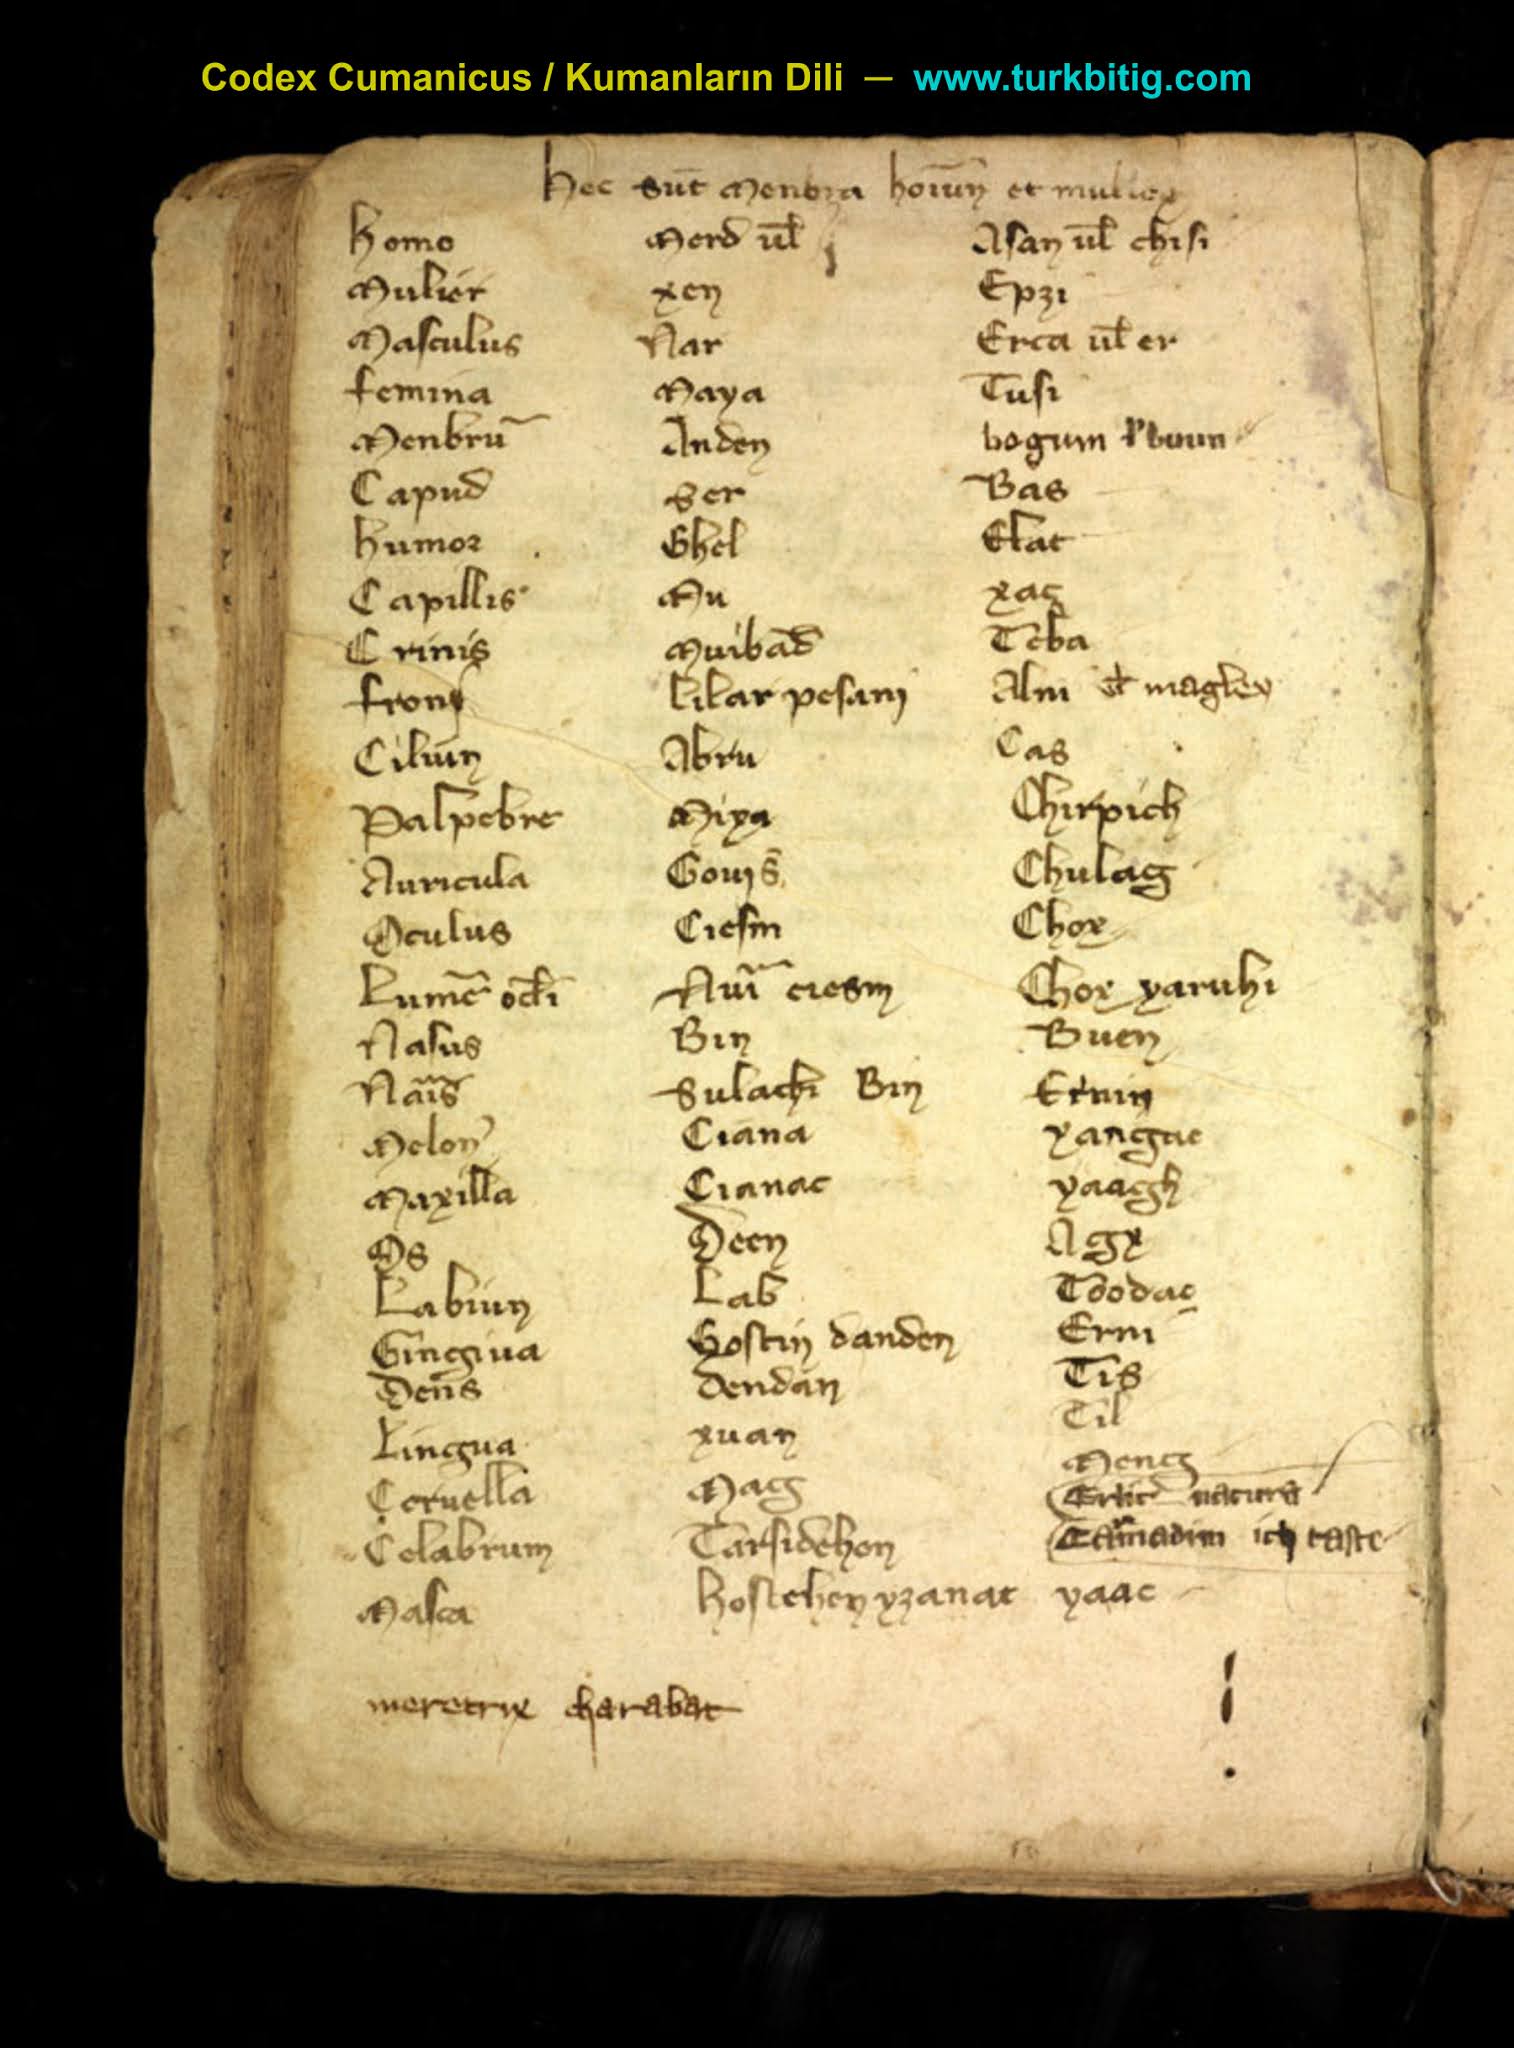 Codex Cumanicus / Kumanların Dili — www.turkbitig.com
Hec sūt Menbra hoīuɱ et mulieꝝ
Homo Merd ul̄ Asan ul̄ chisi
Mulier xen Epzi
Masculus Nar Erca ul̄ er
femina Maya Tusi
Menbrū Anden bogum
Capud Ser Bas
humor Ghel Elat
Capillis Mu xac
Crinis Muibad Teba
frons lilar pesani Alni maglex
Ciliun Abru Cas
Palpebre Mixa Chirpich
Auricula Gous Chulag
Oculus Ciesm Chox
Lumē ocl̄i Nuī ciesm Chox yaruhi
Nasus Bin Buen
Nāis Sulachi Bin Ernin
Melon Ciana yangac
Maxilla Cianac yaagh
Os Deen Agx
Labiun Lab Toodac
Gingiua Gostin danden Erni
Dens dendan Tis
Lingua xuan Til
Ceruella Mag Meng
natura
Celabrum Tarsidehon Tamadim ich taste
Masca hostehen yzanat yaac
meretrix charabat